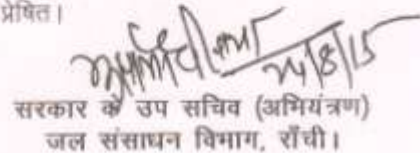 प्रेषित।
24/8/15
सरकार के उप सचिव (अभियंत्रण)
जल संसाधन विभाग, राँची।